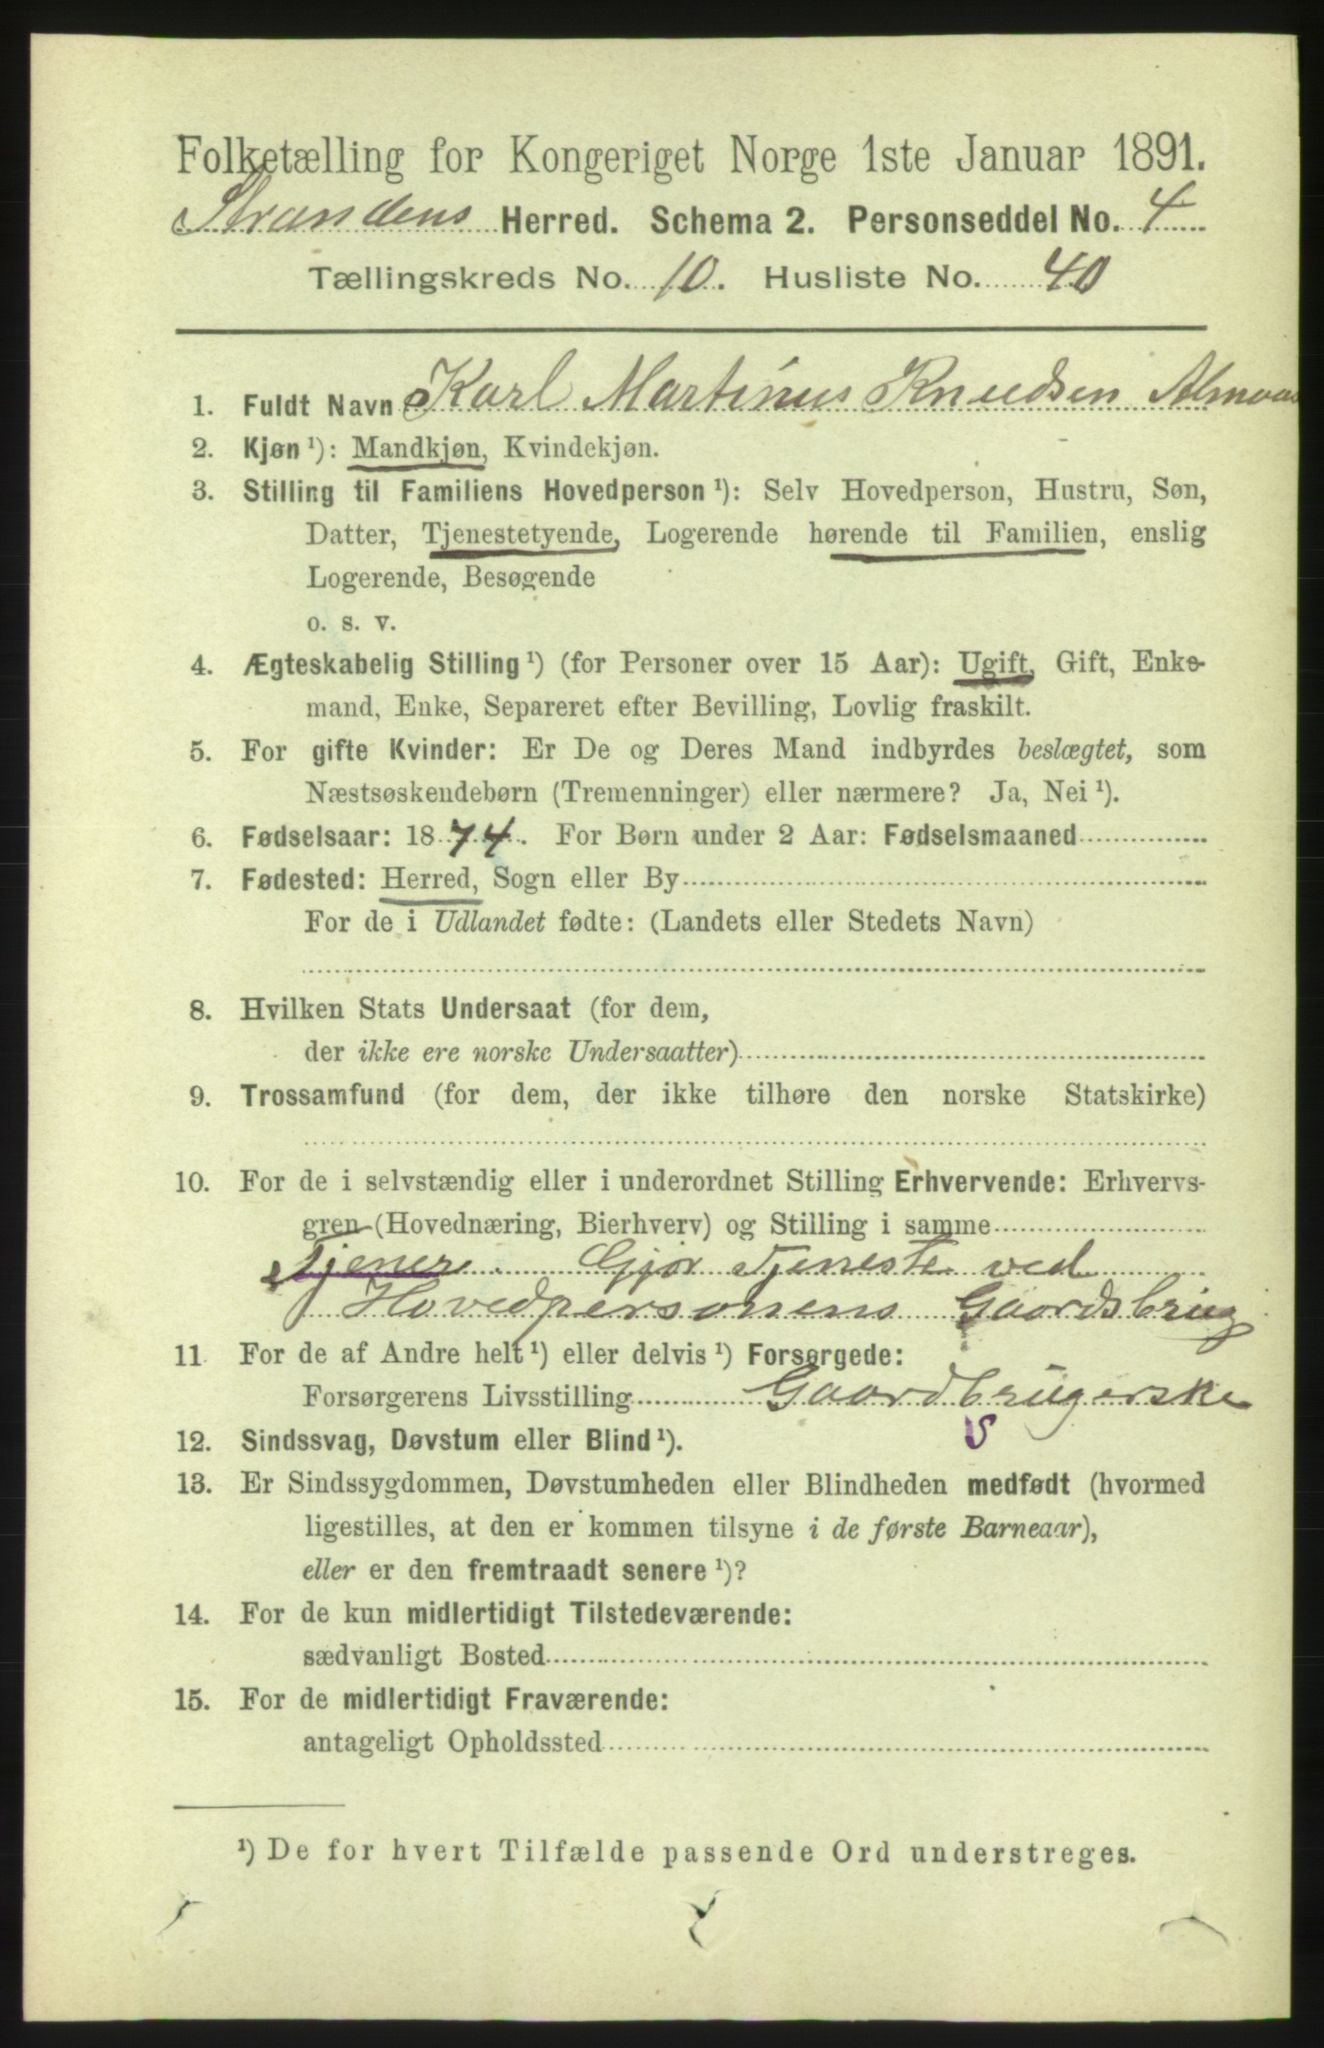 Folketælling for Kongeriget Norge 1ste Januar 1891.
Strandens Herred. Schema 2. Personseddel No. 4
Tællingskreds No. 10. Husliste No. 40
1. Fuldt Navn Karl Martinus Knudsen Almaas
2. Kjøn ¹): Mandkjøn, Kvindekjøn.
3. Stilling til Familiens Hovedperson ¹): Selv Hovedperson, Hustru, Søn,
Datter, Tjenestetyende, Logerende hørende til Familien, enslig
Logerende, Besøgende
o. s. v.
4. Ægteskabelig Stilling ¹) (for Personer over 15 Aar): Ugift, Gift, Enke-
mand, Enke, Separeret efter Bevilling, Lovlig fraskilt.
5. For gifte Kvinder: Er De og Deres Mand indbyrdes beslægtet, som
Næstsøskendebørn (Tremenninger) eller nærmere? Ja, Nei ¹).
6. Fødselsaar: 1874. For Børn under 2 Aar: Fødselsmaaned
7. Fødested: Herred, Sogn eller By
For de i Udlandet fødte: (Landets eller Stedets Navn)
8. Hvilken Stats Undersaat (for dem,
der ikke ere norske Undersaatter)
9. Trossamfund (for dem, der ikke tilhøre den norske Statskirke)
10. For de i selvstændig eller i underordnet Stilling Erhvervende: Erhvervs-
gren (Hovednæring, Bierhverv) og Stilling i samme
Tjener. Gjør Tjeneste ved
Hovedpersonens Gaardsbrug
11 For de af Andre helt ¹) eller delvis ¹) Forsørgede:
Forsørgerens Livsstilling Gaardbrugerske
12. Sindssvag, Døvstum eller Blind ¹). S
13. Er Sindssygdommen, Døvstumheden eller Blindheden medfødt (hvormed
ligestilles, at den er kommen tilsyne i de første Barneaar),
eller er den fremtraadt senere ¹)?
14. For de kun midlertidigt Tilstedeværende:
sædvanligt Bosted
15. For de midlertidigt Fraværende:
antageligt Opholdssted
¹) De for hvert Tilfælde passende Ord understreges.